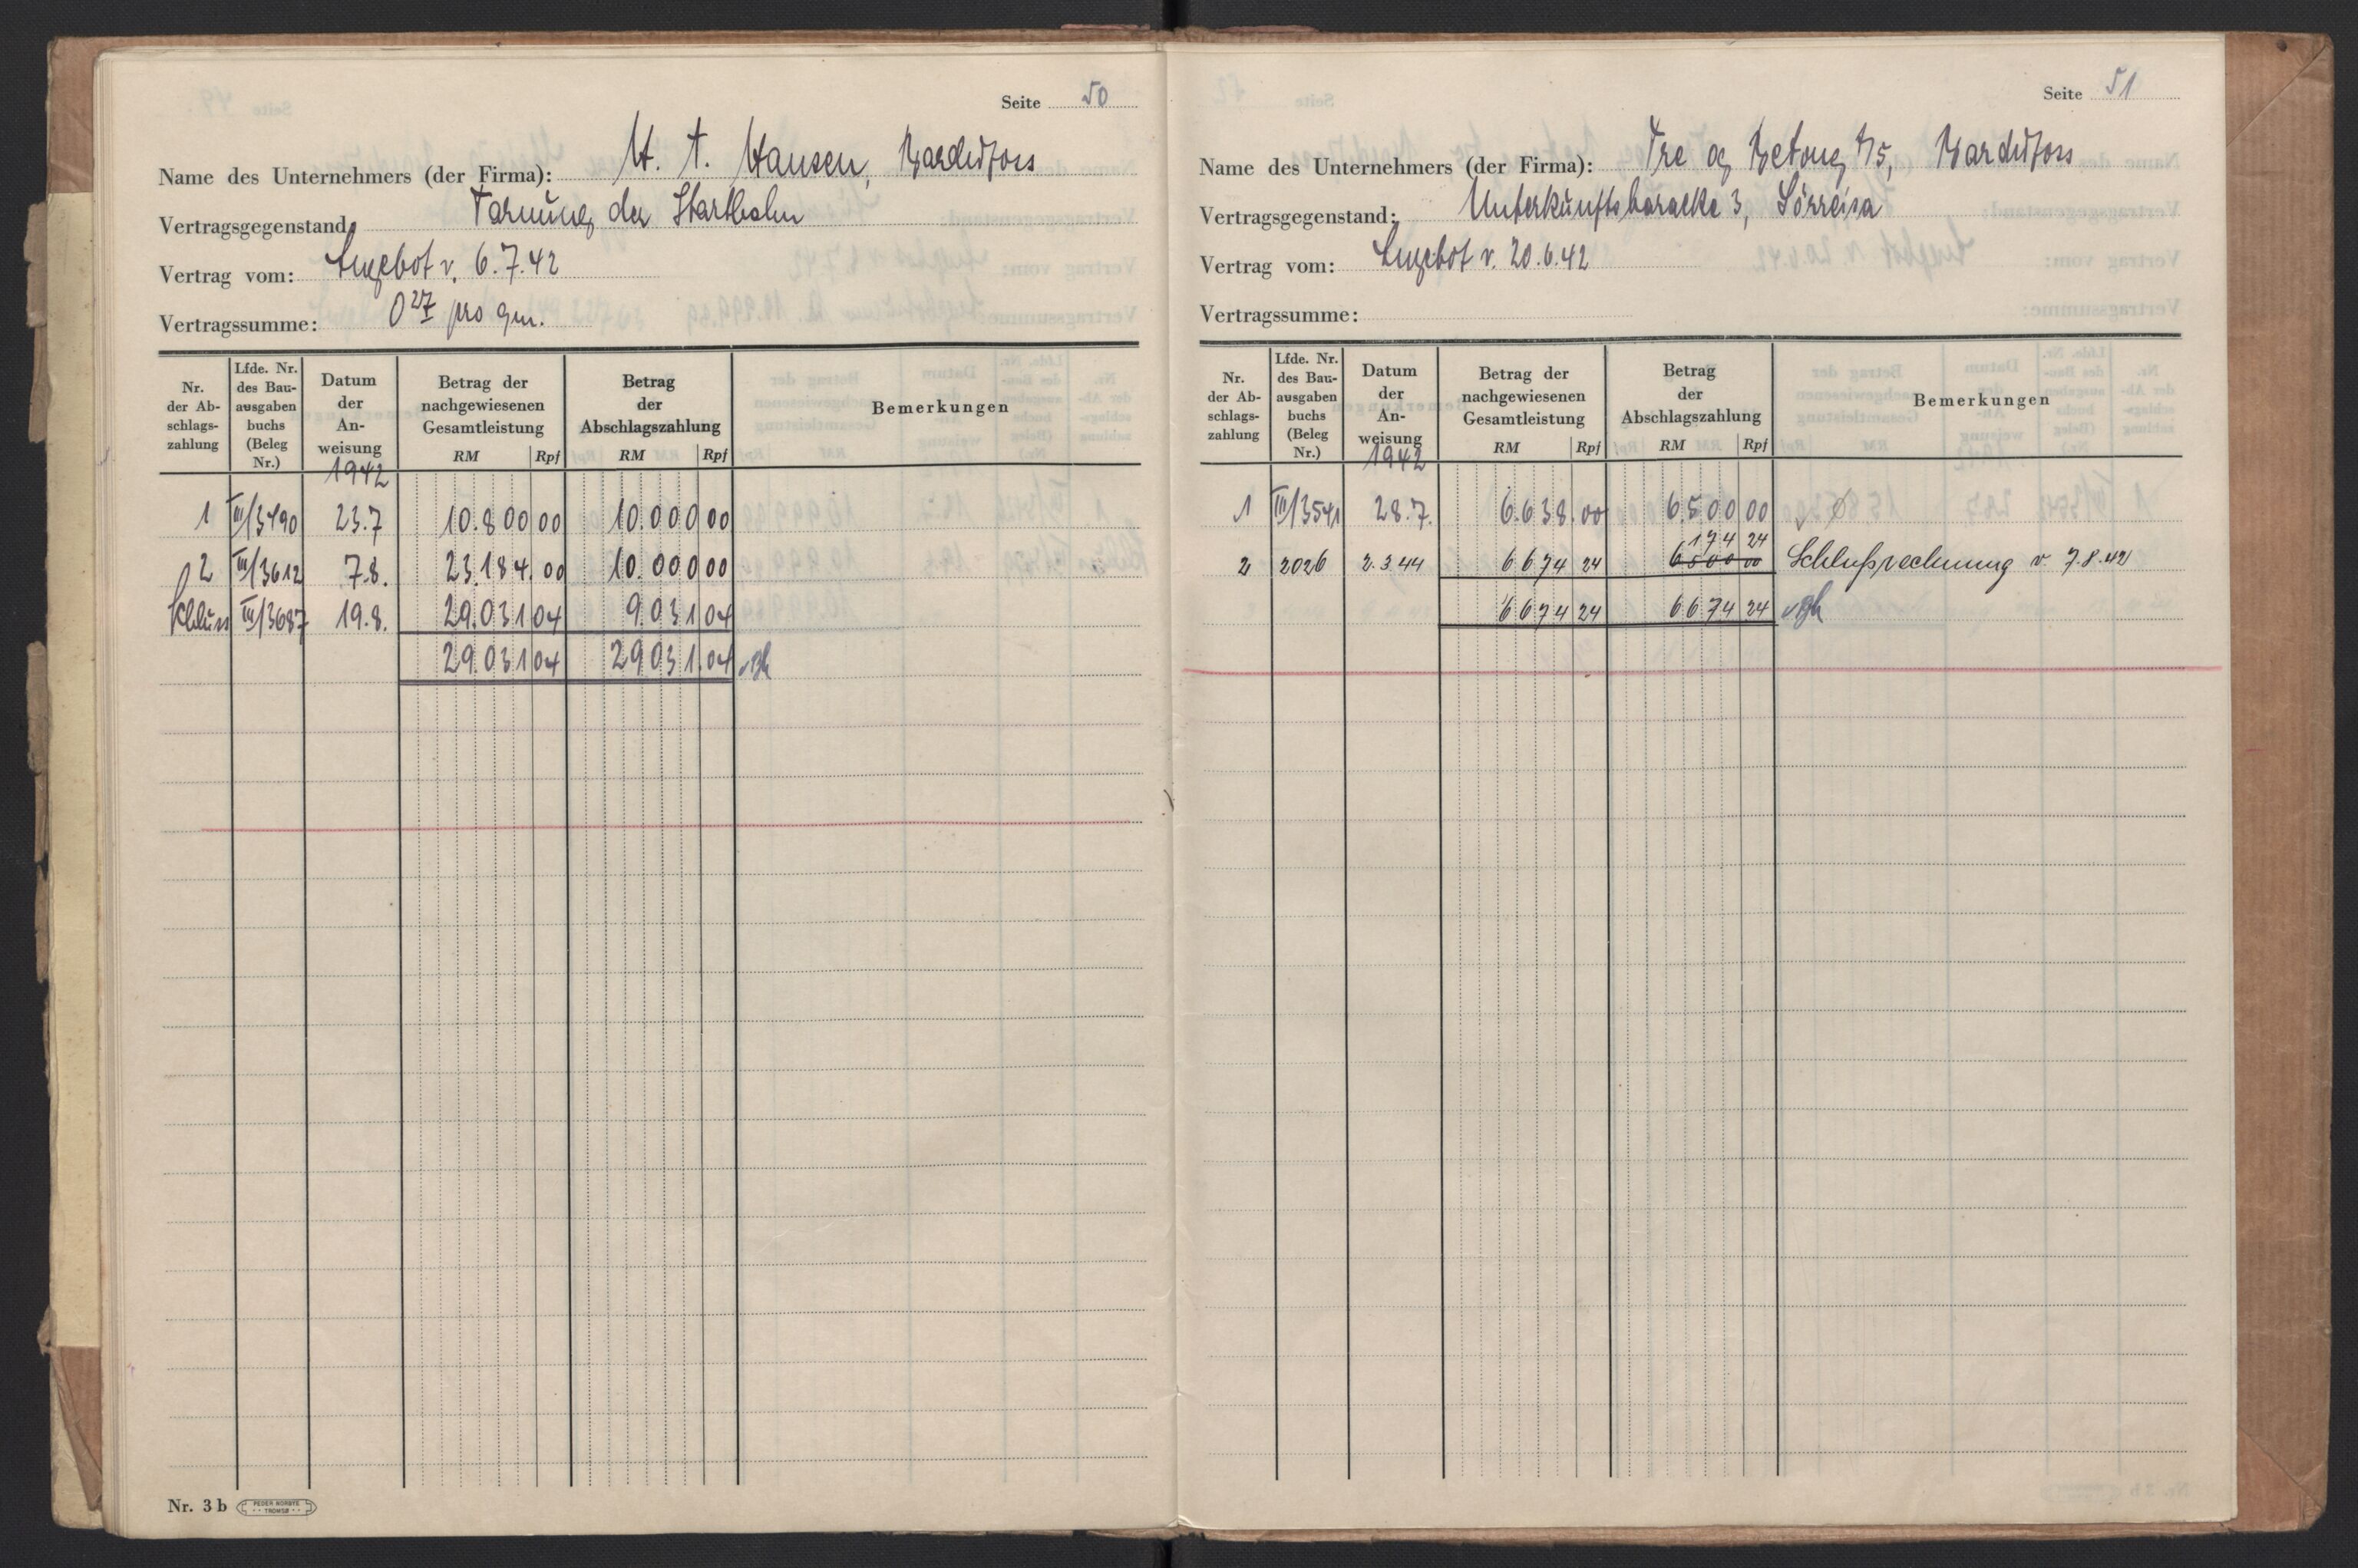 Seite 50
Name des Unternehmers (der Firma): H. A. Hansen, Bardufoss
Vertragsgegenstand: Tarnung der Startbahn
Vertrag vom: Angebot v. 6.7.42
Vertragssumme: 0 27 pro qm.
Nr. der Abschlagszahlung | Lfde. Nr. des Bauausgabenbuchs (Beleg Nr.) | Datum der Anweisung | Betrag der nachgewiesenen Gesamtleistung RM Rpf | Betrag der Abschlagszahlung RM Rpf | Bemerkungen
1942
1 III/3490 23.7 10.800 00 10.000 00
2 III/3612 7.8. 23.184.00 10.000 00
Schluss III/3687 19.8. 29.031 04 9.031 04
29.031 04 29031.04
Nr. 3 b PEDER NORBYE TROMSØ
Seite 51
Name des Unternehmers (der Firma): Tre og Betong A/S, Bardufoss
Vertragsgegenstand: Unterkunftsbaracke 3, Sörreisa
Vertrag vom: Angebot v. 20.6.42
Vertragssumme:
Nr. der Abschlagszahlung | Lfde. Nr. des Bauausgabenbuchs (Beleg Nr.) | Datum der Anweisung | Betrag der nachgewiesenen Gesamtleistung RM Rpf | Betrag der Abschlagszahlung RM Rpf | Bemerkungen
1942
1 III/3541 28.7. 6.638.00 6500 00
174 24
2 2026 2.3 44 6674 24 6500 00 Schlußrechnung v. 7.8.42
6674 24 6674 24